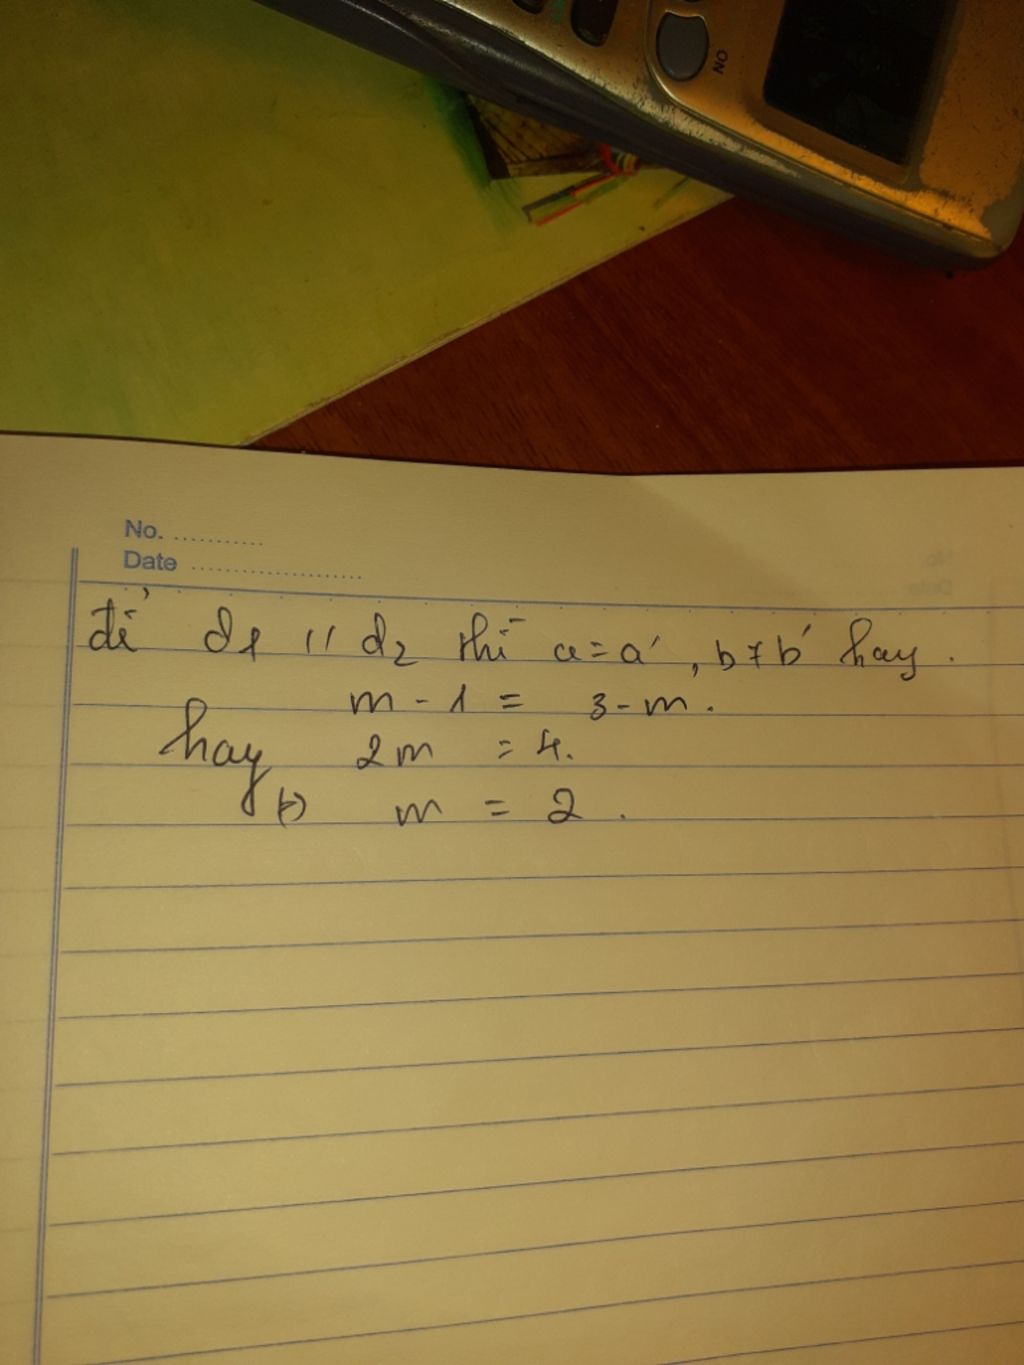 ON
No. ...........
Date ......................
để d1 // d2 thì a = a', b ≠ b' hay.
m - 1 = 3 - m.
hay 2m = 4.
m = 2.